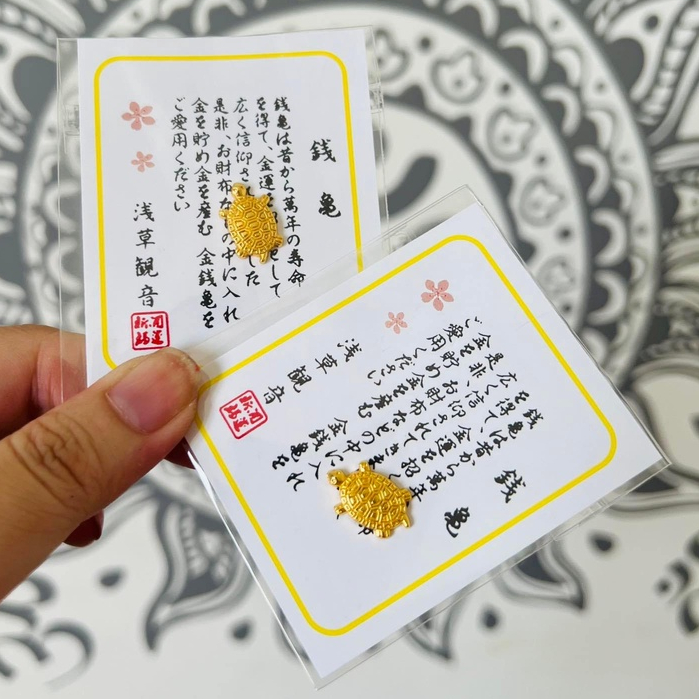 銭亀
銭亀は昔から萬年の寿命
を得て、金運 として
広く信仰さ した
是非、お財布な の中に入れ
金を貯め金を産む 金銭亀を
ご愛用ください
浅草観音
開運
銭亀
銭亀は昔から萬年 命
を得て、金運を招
広く信仰されてきま
是非、お財布などの中に入れ
金を貯め金を産む 金銭亀を
ご愛用ください
浅草観音
開運